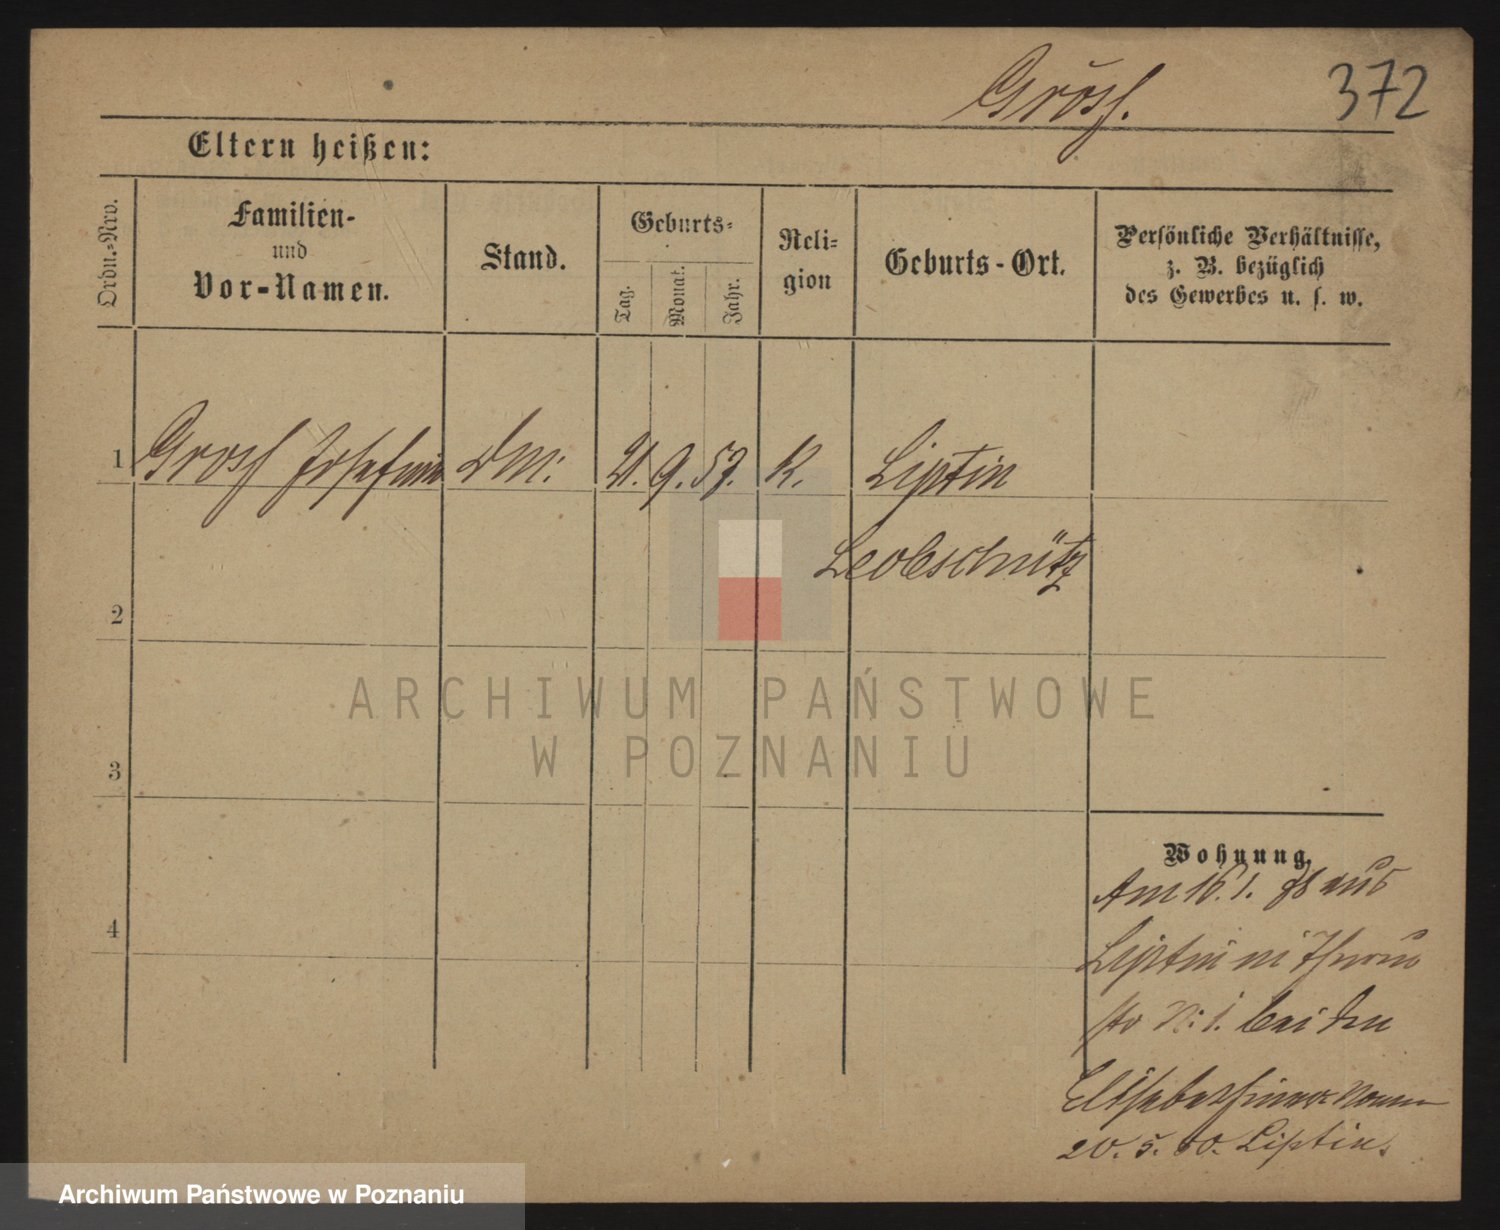 Grosf.
372
Eltern heißen:
Ordn.-Nro.
Familien-
und
Vor-Namen.
Stand.
Geburts-
Tag.
Monat.
Jahr.
Reli-
gion
Geburts-Ort.
Persönliche Verhältnisse,
z. B. bezüglich
des Gewerbes u. s. w.
1 Grosf Josefine 21. 9. 57. K. Liptin
Leobschütz
2
3
4
ARCHIWUM PAŃSTWOWE
W POZNANIU
Wohnung.
Am 16. 1. aus
Liptin
No 1. bei den
Elisabethinerinnen
20. 5. Liptin.
Archiwum Państwowe w Poznaniu